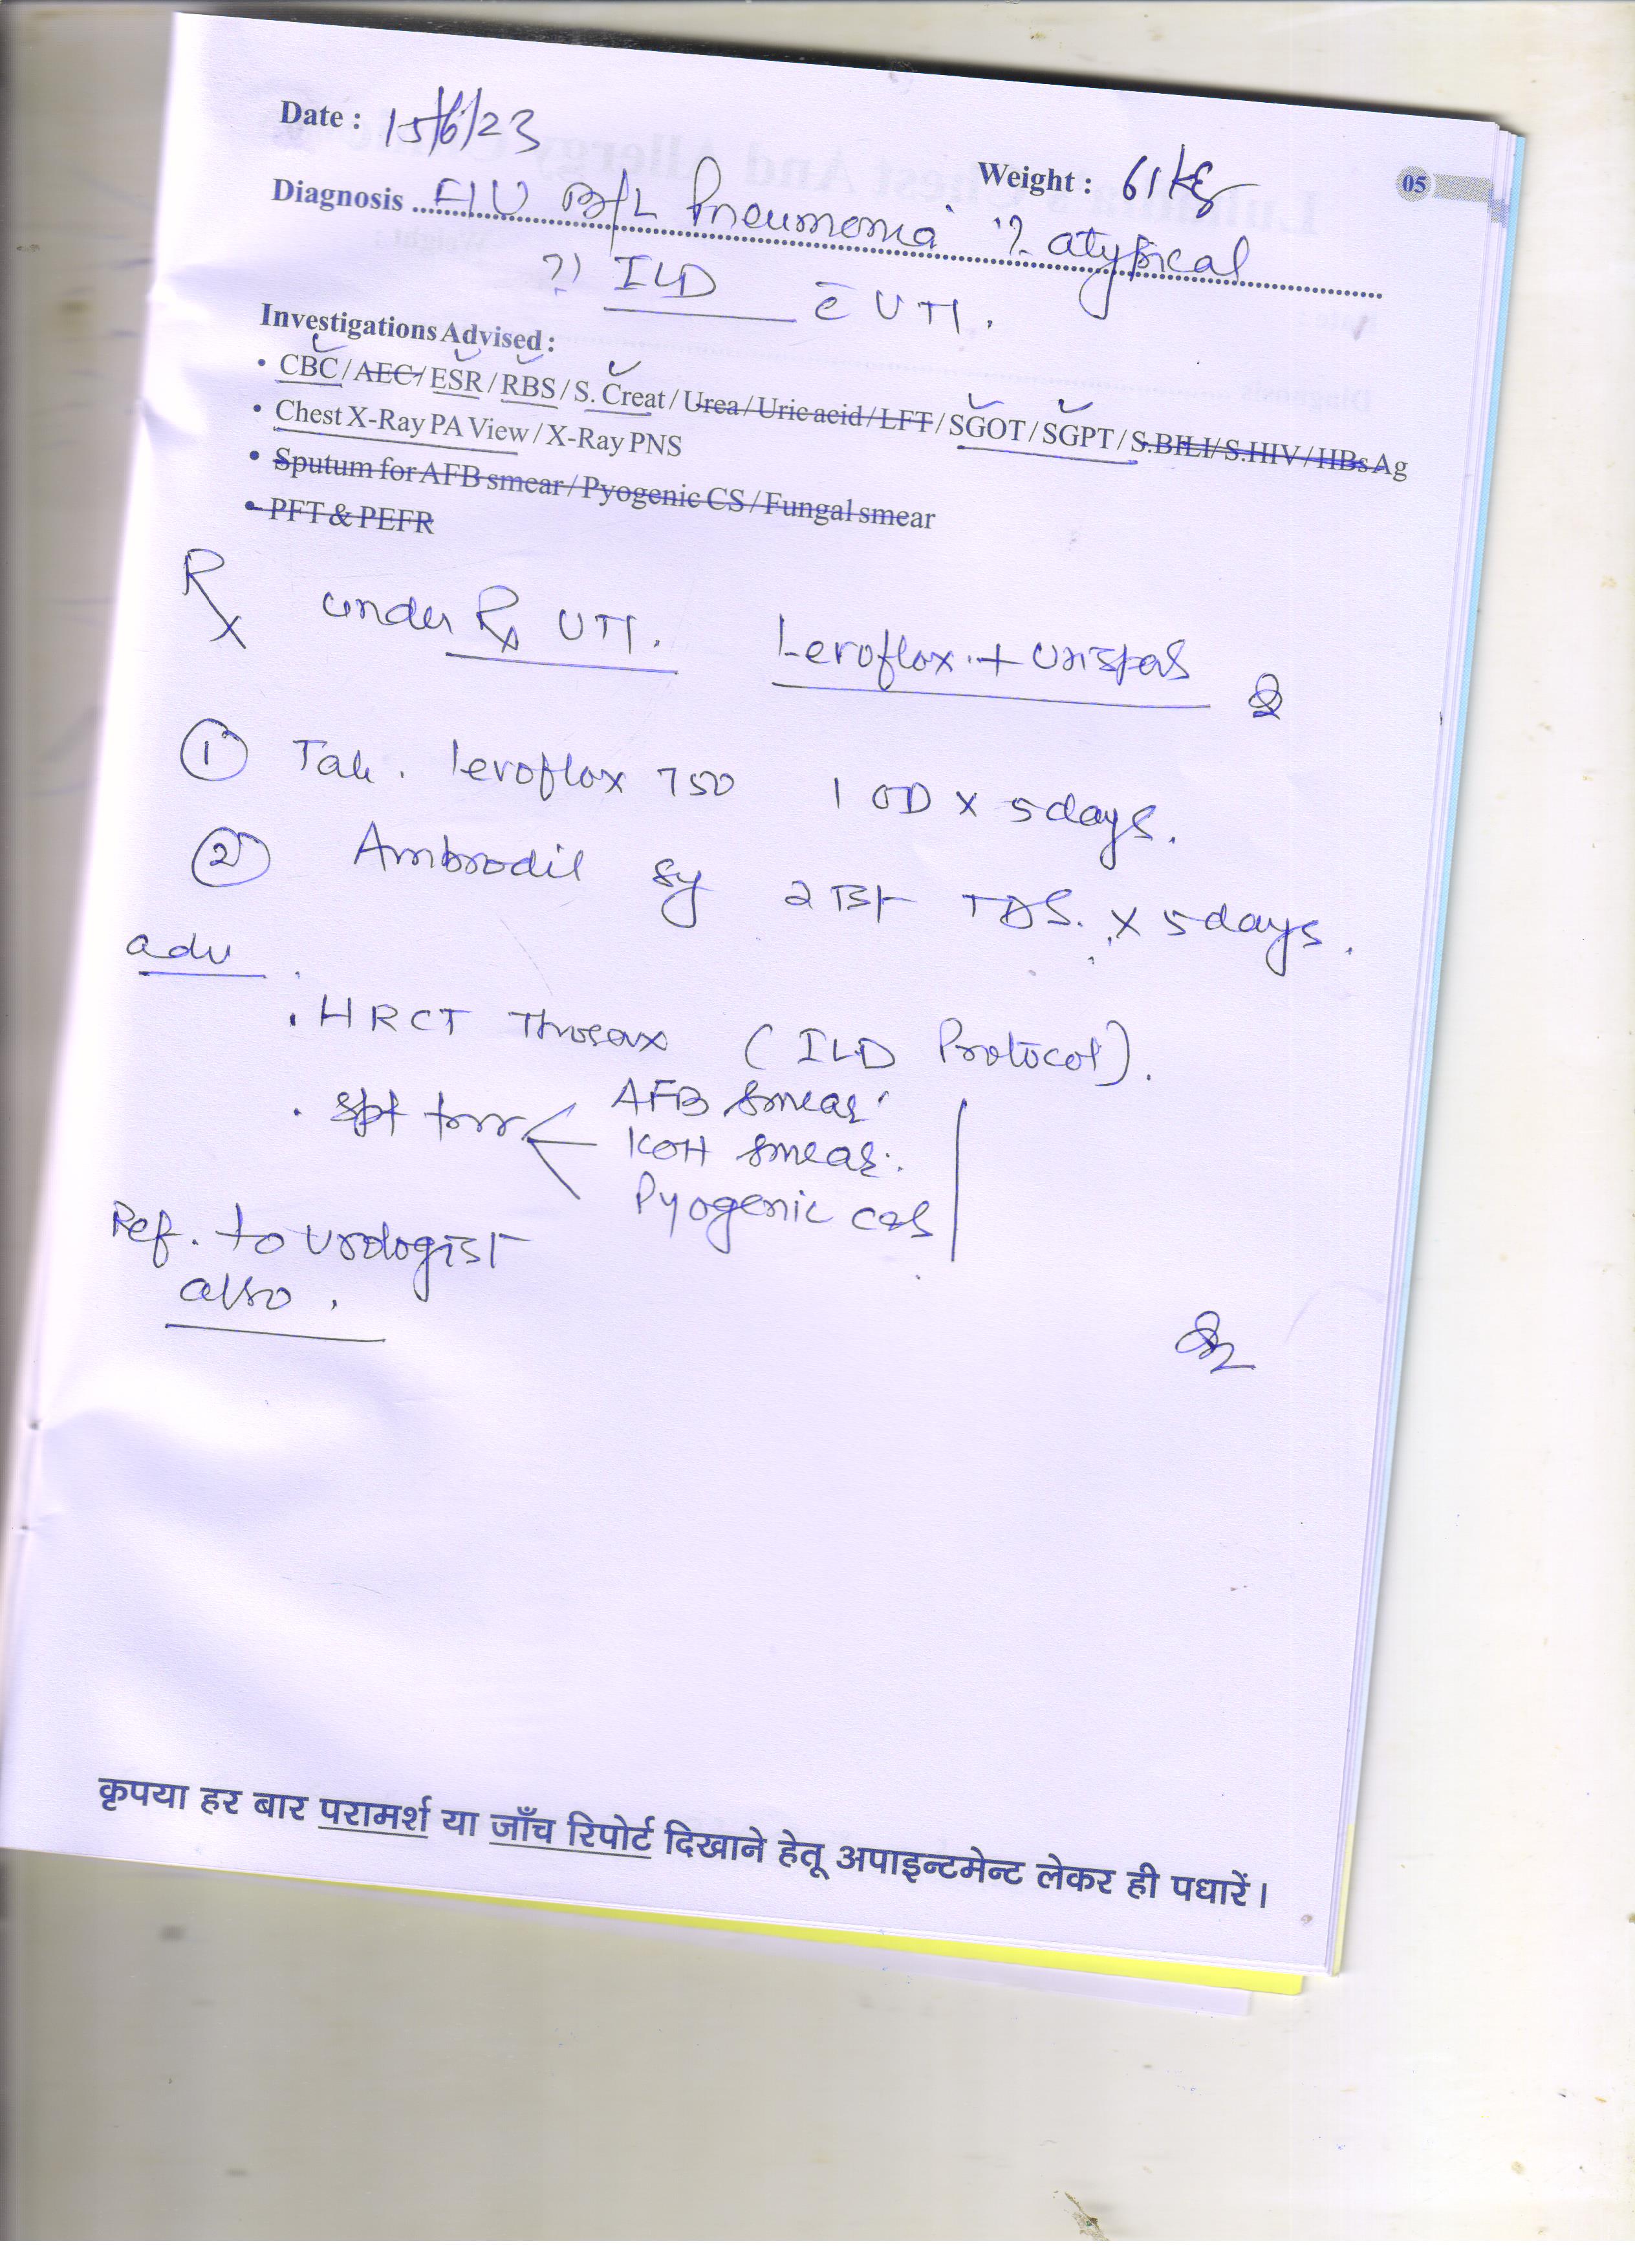 Date : 15/6/23
Weight : 61 kg
05
Diagnosis F/U B/L Pneumonia ? atypical
?) ILD c̄ UTI.
Investigations Advised :
• CBC / AEC / ESR / RBS / S. Creat / Urea / Uric acid / LFT / SGOT / SGPT / S.BILI / S.HIV / HBs Ag
• Chest X-Ray PA View / X-Ray PNS
• Sputum for AFB smear / Pyogenic CS / Fungal smear
• PFT & PEFR
Rx under Rx UTI. Levoflox + Urispas
① Tab. levoflox 750 1 OD x 5 days.
② Ambrodil sy 2 TSF TDS. x 5 days.
adv
. HRCT Thorax (ILD Protocol).
. Spt for AFB smear
KOH smear.
Pyogenic c&s
Ref. to Urologist
also.
कृपया हर बार परामर्श या जाँच रिपोर्ट दिखाने हेतू अपाइन्टमेन्ट लेकर ही पधारें।